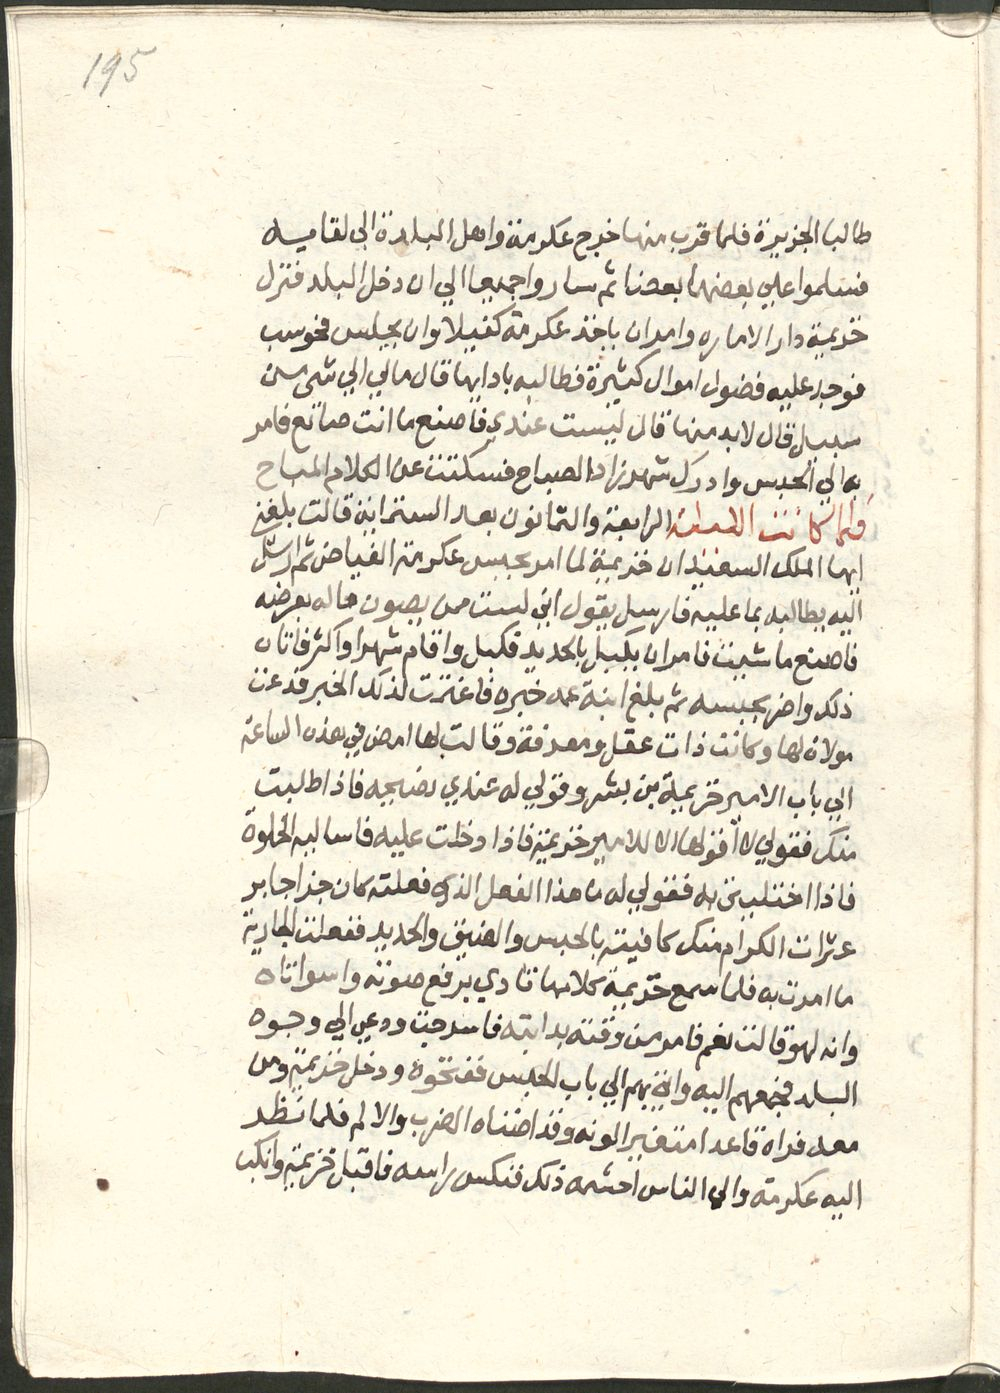 195
طالبا الجزيرة فلما قرب منها خرج عكرمة واهل البلدة الى لقايه
فسلموا علي بعضهما بعضا ثم ساروا جميعا الي ان دخل البلد فنزل
خزيمة دار الاماره وامر ان ياخذ عكرمة كفيلا وان يجلس فحوسب
فوجد عليه فضول اموال كثيرة فطالبه بادايها قال مالي الي شي من
سبيل قال لابد منها قال ليست عندي فاصنع ما انت صانع فامر
به الي الحبس وادرك شهرزاد الصباح فسكتت عن الكلام المباح
فلما كانت الليلة الرابعة والثمانون بعد الستماية قالت بلغني
ايها الملك السعيد ان خزيمة لما امر بحبس عكرمة الفياض ثم ارسل
اليه يطالبه بما عليه فارسل يقول اني لست ممن يصون ماله بعرضه
فاصنع ما شيت فامر ان يكبل بالحديد فكبل واقام شهرا واكثر فاتان
ذلك واضر بحبسه ثم بلغ ابنة عمه خبره فاغتزت لذلك الخبر فدعت
مولاة لها وكانت ذات عقل ومعرفة وقالت لها امضي في هذه الساعة
الي باب الامير خزيمة بن بشر وقولي له عندي نصيحه فاذا طلبت
منك فقولي لا اقولها الا للامير خزيمة فاذا دخلت عليه فاساليه الخلوة
فاذا اختليتي به فقولي له ما هذا الفعل الذي فعلته كان جزا جابر
عثرات الكرام منك كافيته بالحبس والضيق والحديد ففعلت الجارية
ما امرت به فلما سمع خزيمة كلامها نادي برفع صوته واسواتاه
وانه لهو قالت نعم فامر من وقته بدابته فاسرجت ودعي الي وجوه
البلد فجمعهم اليه واتي بهم الي باب الحبس ففتحوه ودخل خزيمة ومن
معه فراه قاعدا متغير الونه وقد اضناه الضرب والالم فلما نظر
اليه عكرمة والي الناس احشمه ذلك فنكس راسه فاقبل خزيمة وانكب